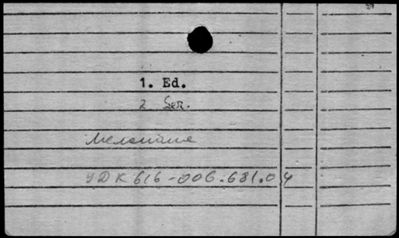 1. Ed.
2 Ser.
УДК 616-006.681.04